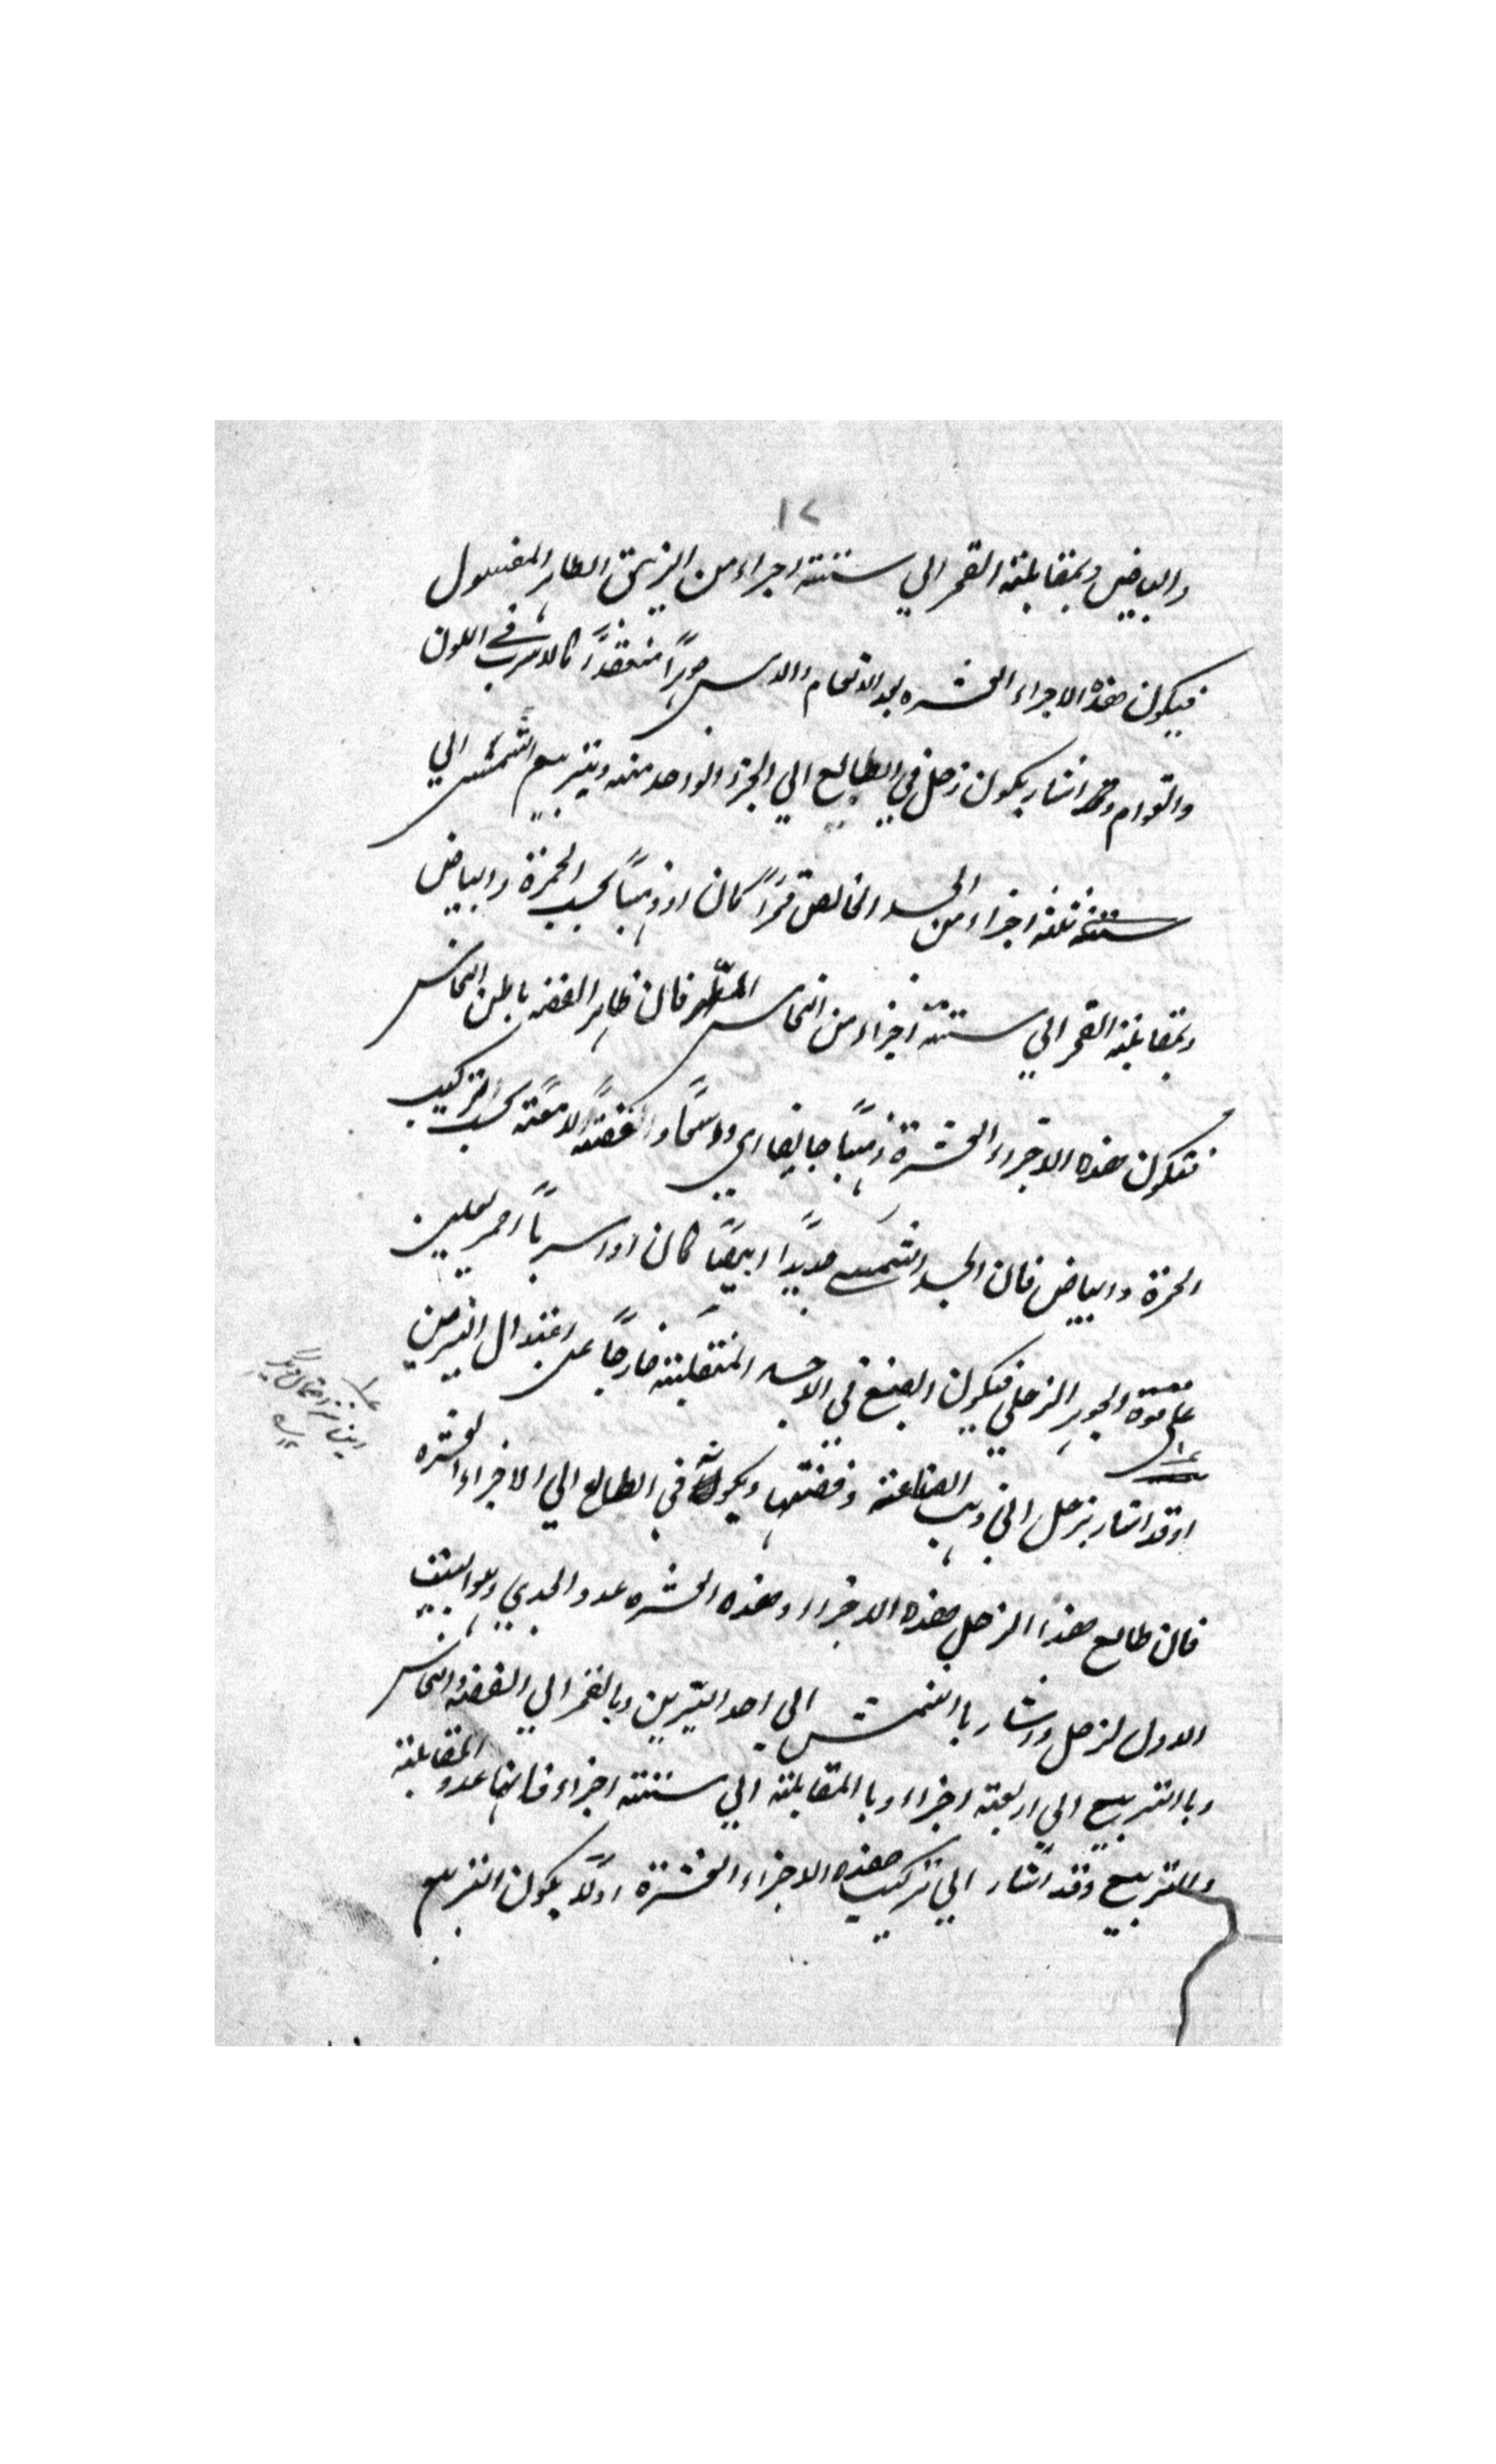 ١٢
والبياض وبمقابلة القمر الي ستته اجزاء من الزيبق الطاهر المغسول
فيكون هذه الاجزاء العشره بعد الالتحام والا جوهراً منعقداً كالاسرب في اللون
والقوام وقد اشار بكون زحل في الطالع الي الجزء الواحد منه وبتربيع الشمس الي
ثلثة اجزاء من الجسد الخالص قمراً كان او ذهباً بحسب الحمرة والبياض
وبمقابلة القمر الي ستتة اجزاء من النحاس المطهر فان ظاهر الفضة باطن النحاس
فتكون هذه الاجزاء العشرة ذهباً والفضة لامعته بحسب التركيب
الحمرة والبياض فان الجسد الشمسي حديداً ابيضاً كان او اسرباً احمر يعلبين
علي قوة الجوهر الزحلي فيكون الصبغ في الاجساد المنتقلبة خارجاً عن اعتدال النيرين
او قد اشار بزحل الي ذهب الصناعة وفضتها وبكونه في الطالع الي الاجزاء العشره
فان طالع هذا الزحل هذه الاجزاء وهذه العشره عدد الجدي وهو البيت
الاول لزحل واشار باالشمس الي احد النيرين وبالقمر الي الفضة والنحاس
وباالتربيع الي اربعة اجزاء وباالمقابلة الي ستتة اجزاء فانها عدد المقابلة
والتربيع وقد اشار الي تركيب هذه الاجزاء العشرة اولاً بكون التربيع